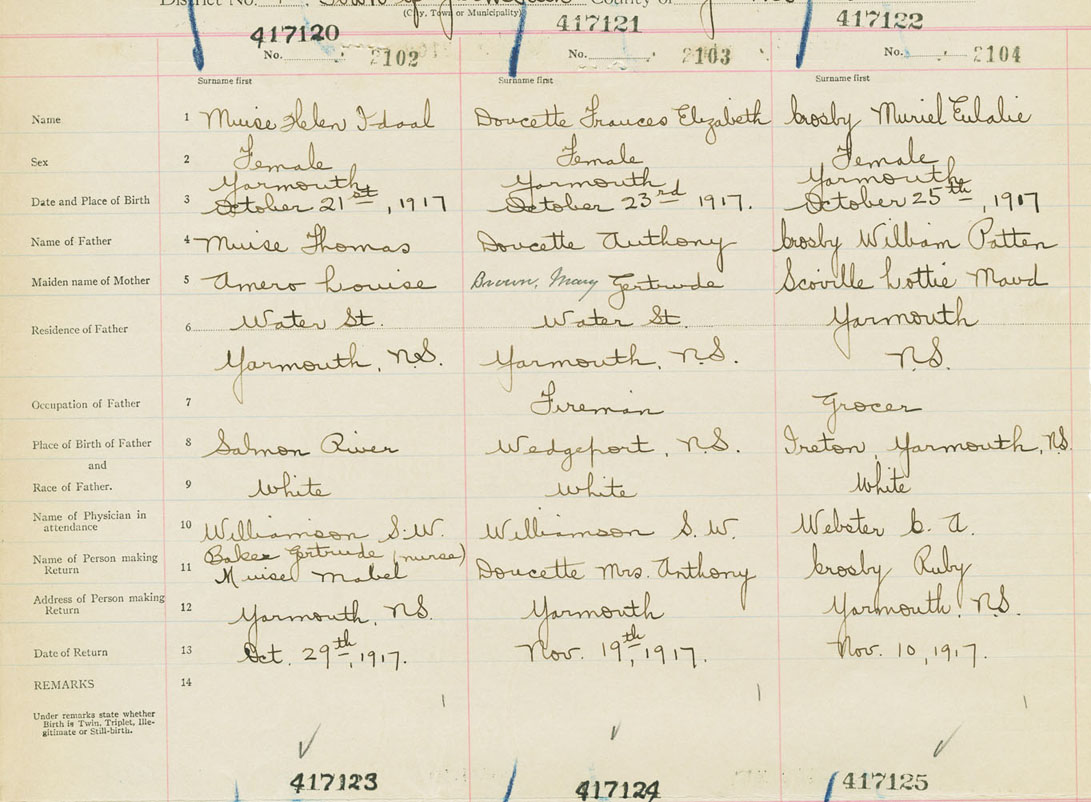 District No. Town of County of
(City, Town or Municipality)
417120 417121 417122
No. 2102 No. 2103 No. 2104
Surname first Surname first Surname first
Name 1 Muise Helen Idaal Doucette Frances Elizabeth Crosby Muriel Eulalie
Sex 2 Female Female Female
Yarmouth Yarmouth Yarmouth
Date and Place of Birth 3 October 21st, 1917 October 23rd 1917. October 25th, 1917
Name of Father 4 Muise Thomas Doucette Anthony Crosby William Patten
Maiden name of Mother 5 Amero Louise Brown, Mary Gertrude Scoville Lottie Maud
Residence of Father 6 Water St. Water St. Yarmouth
Yarmouth, N.S. Yarmouth, N.S. N.S.
Occupation of Father 7 Fireman Grocer
Place of Birth of Father 8 Salmon River Wedgeport, N.S. Ireton, Yarmouth, N.S.
and
Race of Father. 9 White White White
Name of Physician in
attendance 10 Williamson S.W. Williamson S.W. Webster C. A.
Name of Person making Baker Gertrude (nurse)
Return 11 Muise Mabel Doucette Mrs. Anthony Crosby Ruby
Address of Person making
Return 12 Yarmouth, N.S. Yarmouth Yarmouth, N.S.
Date of Return 13 Oct. 29th, 1917. Nov. 19th, 1917. Nov. 10, 1917.
REMARKS 14
Under remarks state whether
Birth is Twin, Triplet, Ille-
gitimate or Still-birth.
417123 417124 417125